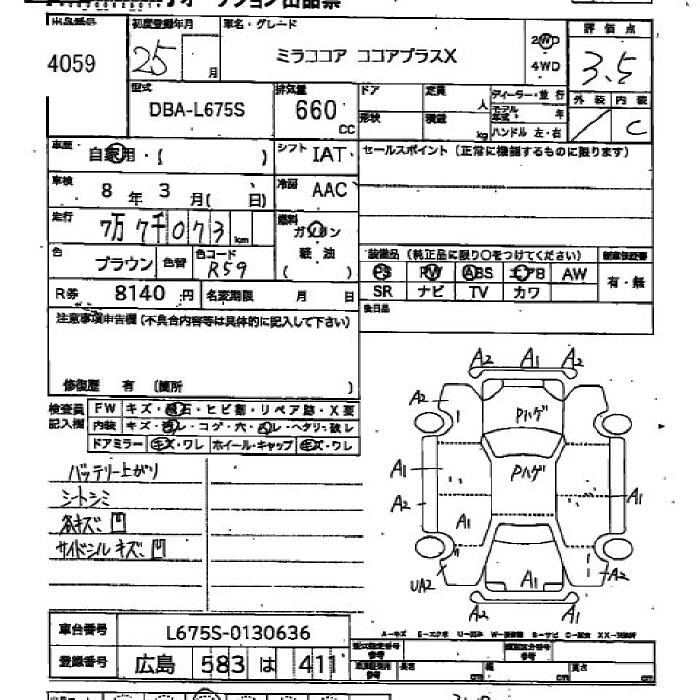 オークション出品票
出品番号 初度登録年月 車名・グレード 評価点
4059 25 月 ミラココア ココアプラスX 2WD 4WD 3.5
型式 排気量 ドア 定員 人 ディーラー・並行 外装 内装
DBA-L675S 660 CC 形状 積載 kg モデル年式 年 ハンドル 左・右 C
車歴 自家用・( ) シフト IAT セールスポイント (正常に機能するものに限ります)
車検 8年 3月( 日) 冷房 AAC
走行 7万7千073 km 燃料 ガソリン 軽油 ( )
色 ブラウン 色替 色コード R59
装備品 (純正品に限り○をつけてください) 新車保証書
PS PW ABS エアB AW 有・無
SR ナビ TV カワ
R券 8140円 名変期限 月 日 後日品
注意事項申告欄 (不具合内容等は具体的に記入して下さい)
修復歴 有 (箇所 )
検査員記入欄 FW キズ・飛石・ヒビ割・リペア跡・X要
内装 キズ・汚レ・コゲ・穴・スレ・ヘタリ・破レ
ドアミラー キズ・ワレ ホイール・キャップ キズ・ワレ
バッテリー上がり
シートシミ
各キズ、凹
サイドシル キズ、凹
A2 A1 A2
A2 Pハゲ
A1 Pハゲ
A2 A1
A1
UA2 A1 A2
A2 A1
車台番号 L675S-0130636
A-キズ E-エクボ U-凹み W-補修跡 S-サビ C-腐食 XX-交換済
登録番号 広島 583 は 411
長さ cm 幅 cm 高さ cm